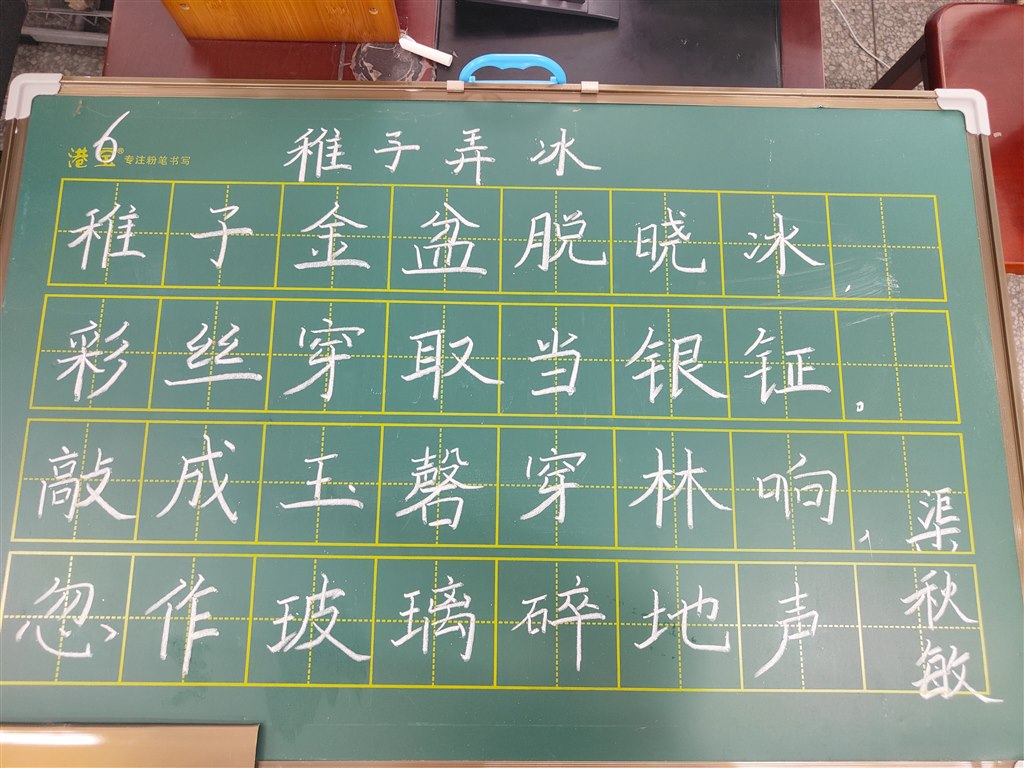 6
港豆® 专注粉笔书写
稚子弄冰
稚子金盆脱晓冰,
彩丝穿取当银钲。
敲成玉磬穿林响,
忽作玻璃碎地声
渠秋敏